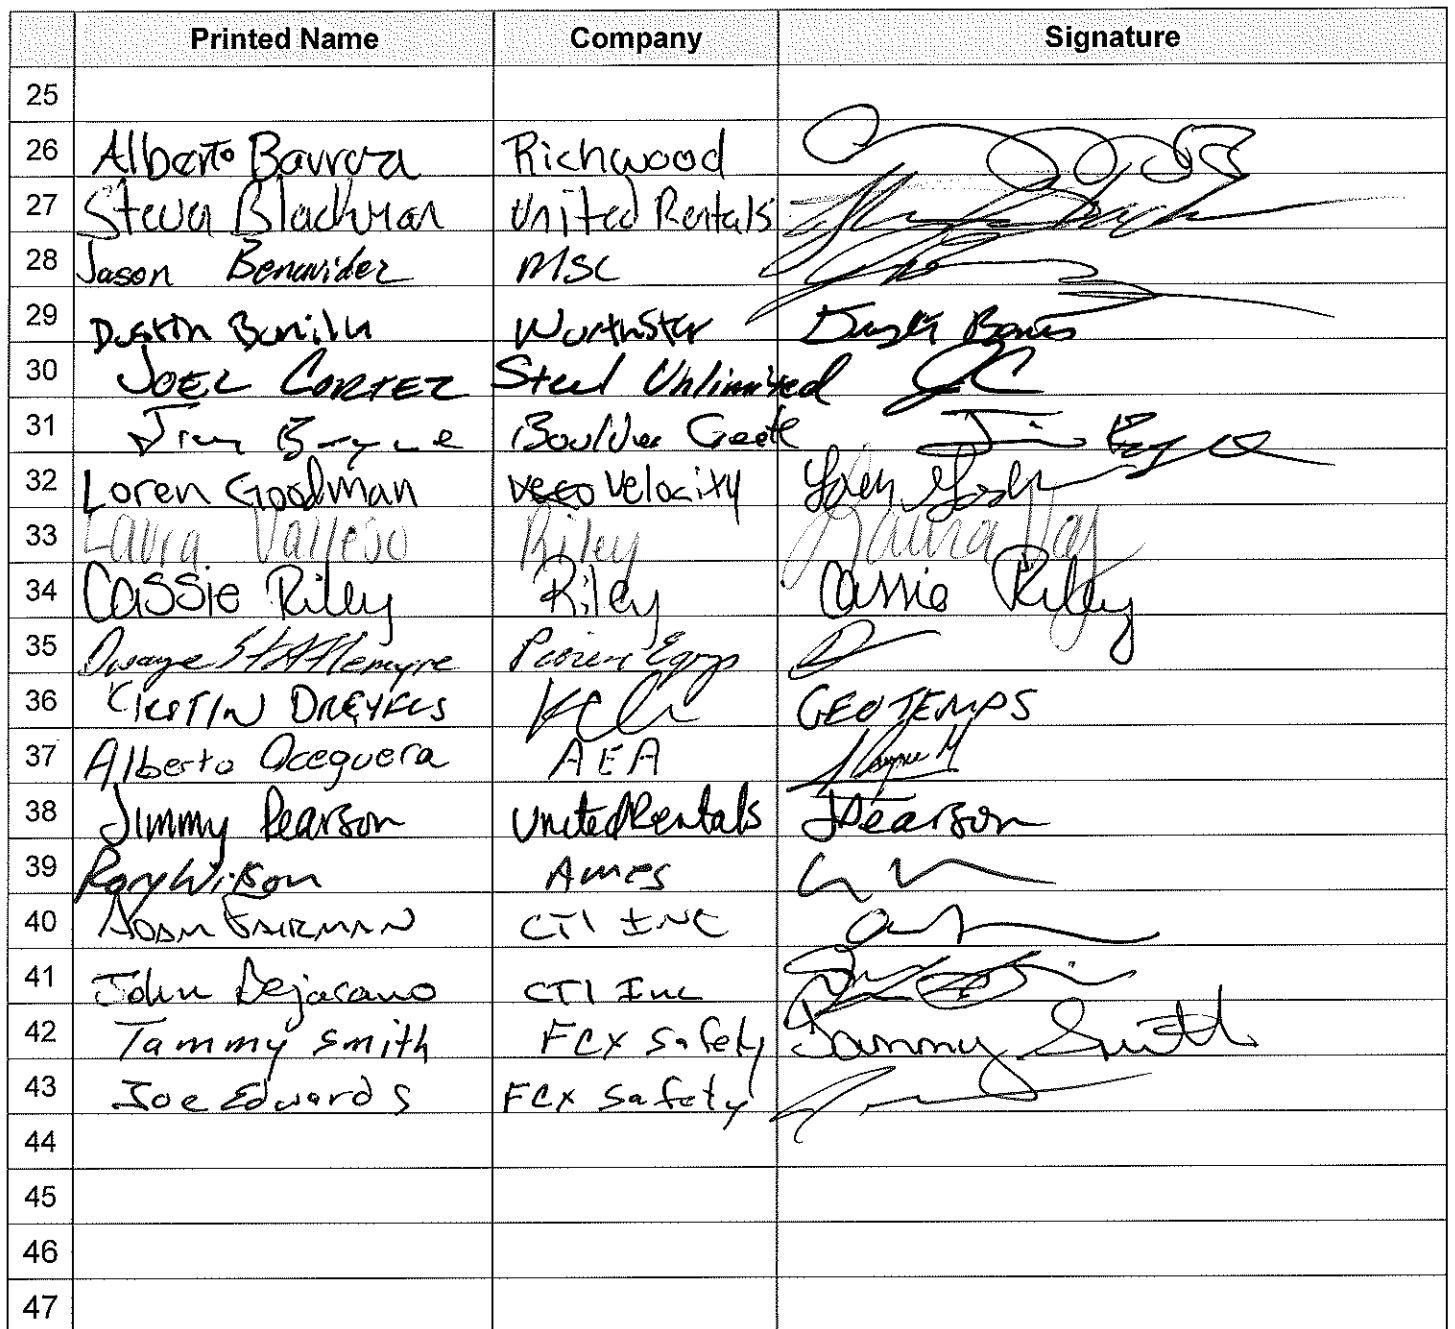 Printed Name Company Signature
25
26 Alberto Barroza Richwood
27 Steven Blackman United Rentals
28 Jason Benavidez MSC
29 Dustin Bonilla
30 JOEL CORTEZ Steel Unlimited JC
31 Jim Boyce Boulder Jim Boyce
32 Loren Goodman Velocity Loren
33 Laura Vallejo Riley Laura Val
34 Cassie Riley Riley Cassie Riley
35 Dwayne Stattlemyre
36 DREYFUS GEOTEMPS
37 Alberto Oceguera AEA
38 Jimmy Pearson United Rentals JPearson
39 Rory Wilson Ames
40 ADAM FAIRMAN CTI INC
41 John Bejarano CTI Inc
42 Tammy Smith FCX Safety Tammy Smith
43 Joe Edwards FCX Safety
44
45
46
47